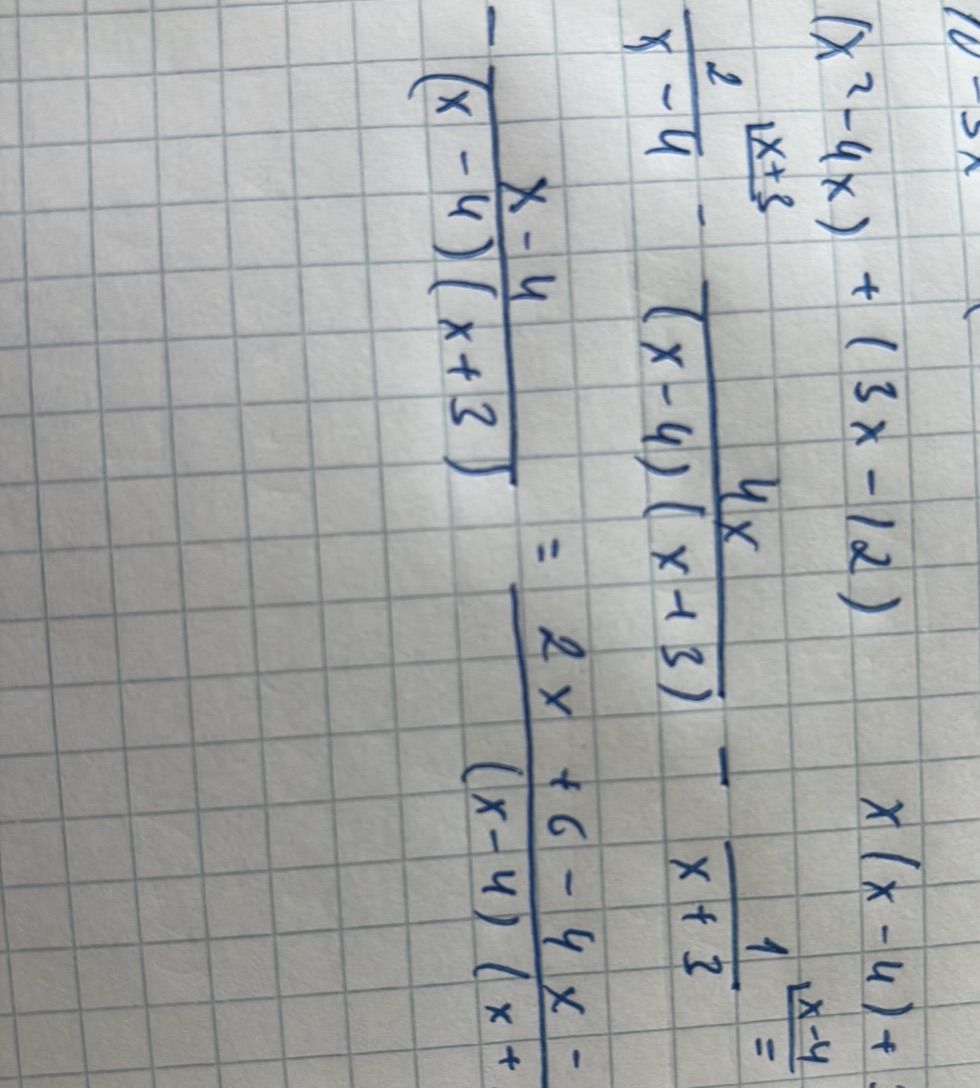 10 - 3x
(x² - 4x) + (3x - 12)   x(x - 4) +
2/(x - 4) |x+3 - 4x/((x - 4)(x + 3)) - 1/(x + 3) |x-4 =
- (x - 4)/((x - 4)(x + 3)) = (2x + 6 - 4x -)/((x - 4)(x +